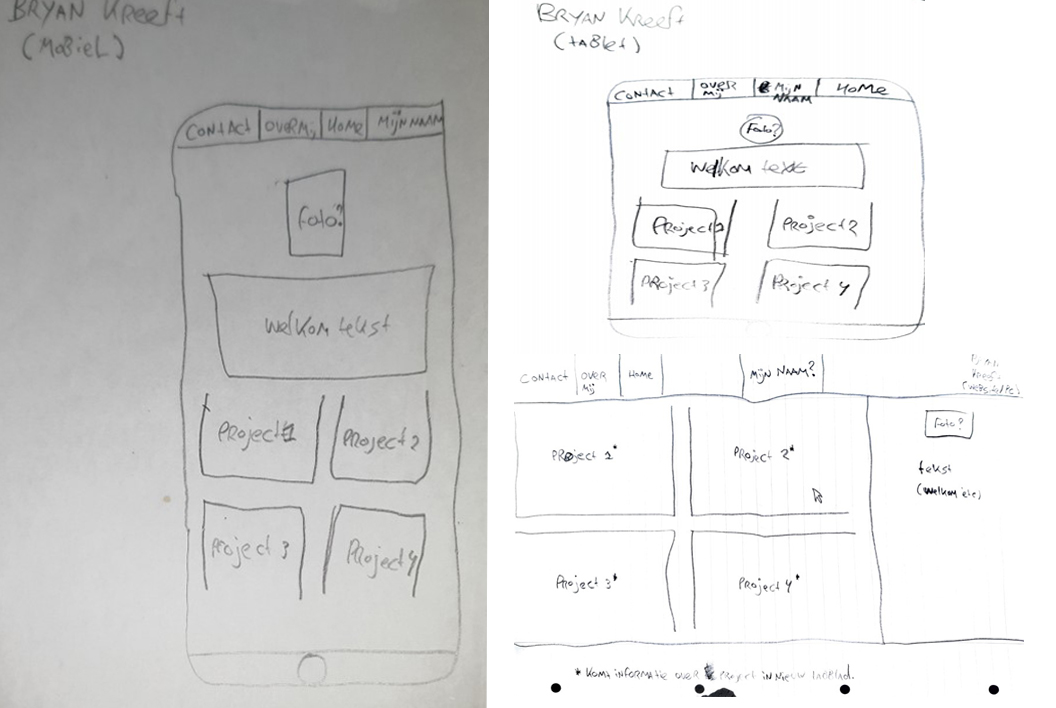 BRYAN Kreeft
(MOBIEL)
CONTACT OVER Mij HOME MijN NAAM
Foto?
Welkom tekst
PROJECT 1 PROJECT 2
PROJECT 3 PROJECT 4
BRYAN Kreeft
(tablet)
CONTACT OVER Mij MIJN NAAM HOME
Foto?
Welkom text
PROJECT 1 PROJECT 2
PROJECT 3 PROJECT 4
CONTACT OVER Mij HOME MijN NAAM?
Kreeft
PROJECT 1* PROJECT 2*
Foto?
tekst
(Welkom etc)
PROJECT 3* PROJECT 4*
* KOMT INFORMATIE OVER PROJECT IN NIEUW TABBLAD.